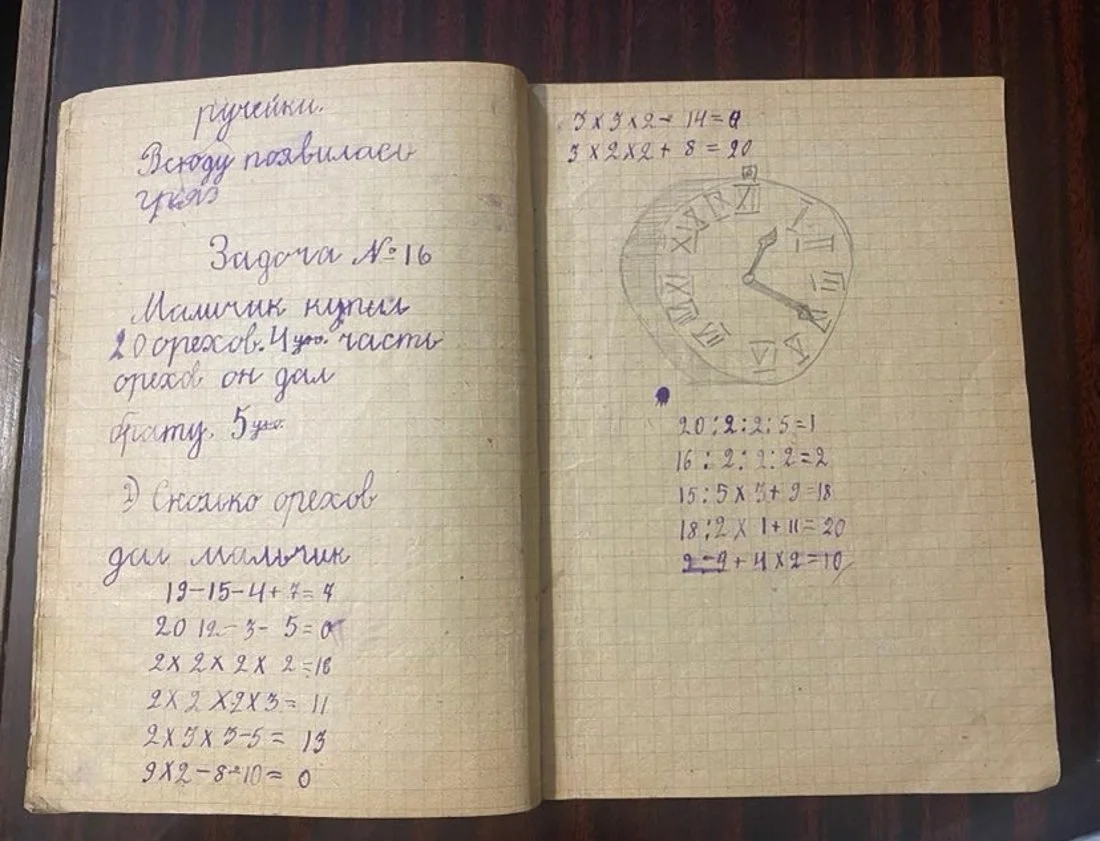 ручейки.
Всюду появилась
Задача № 16
Мальчик купил
20 орехов. 4 часть
орехов он дал
брату. 5
2) Сколько орехов
дал мальчик
19-15-4+7=7
20 12-3-5=0
2×2×2×2=16
2×2×2×3=11
2×3×3-5=13
9×2-8-10=0
3×3×2-14=4
3×2×2+8=20
XII
I
II
III
20:2:2:5=1
16:2:2:2=2
15:5×3+9=18
18:2×1+11=20
+4×2=10